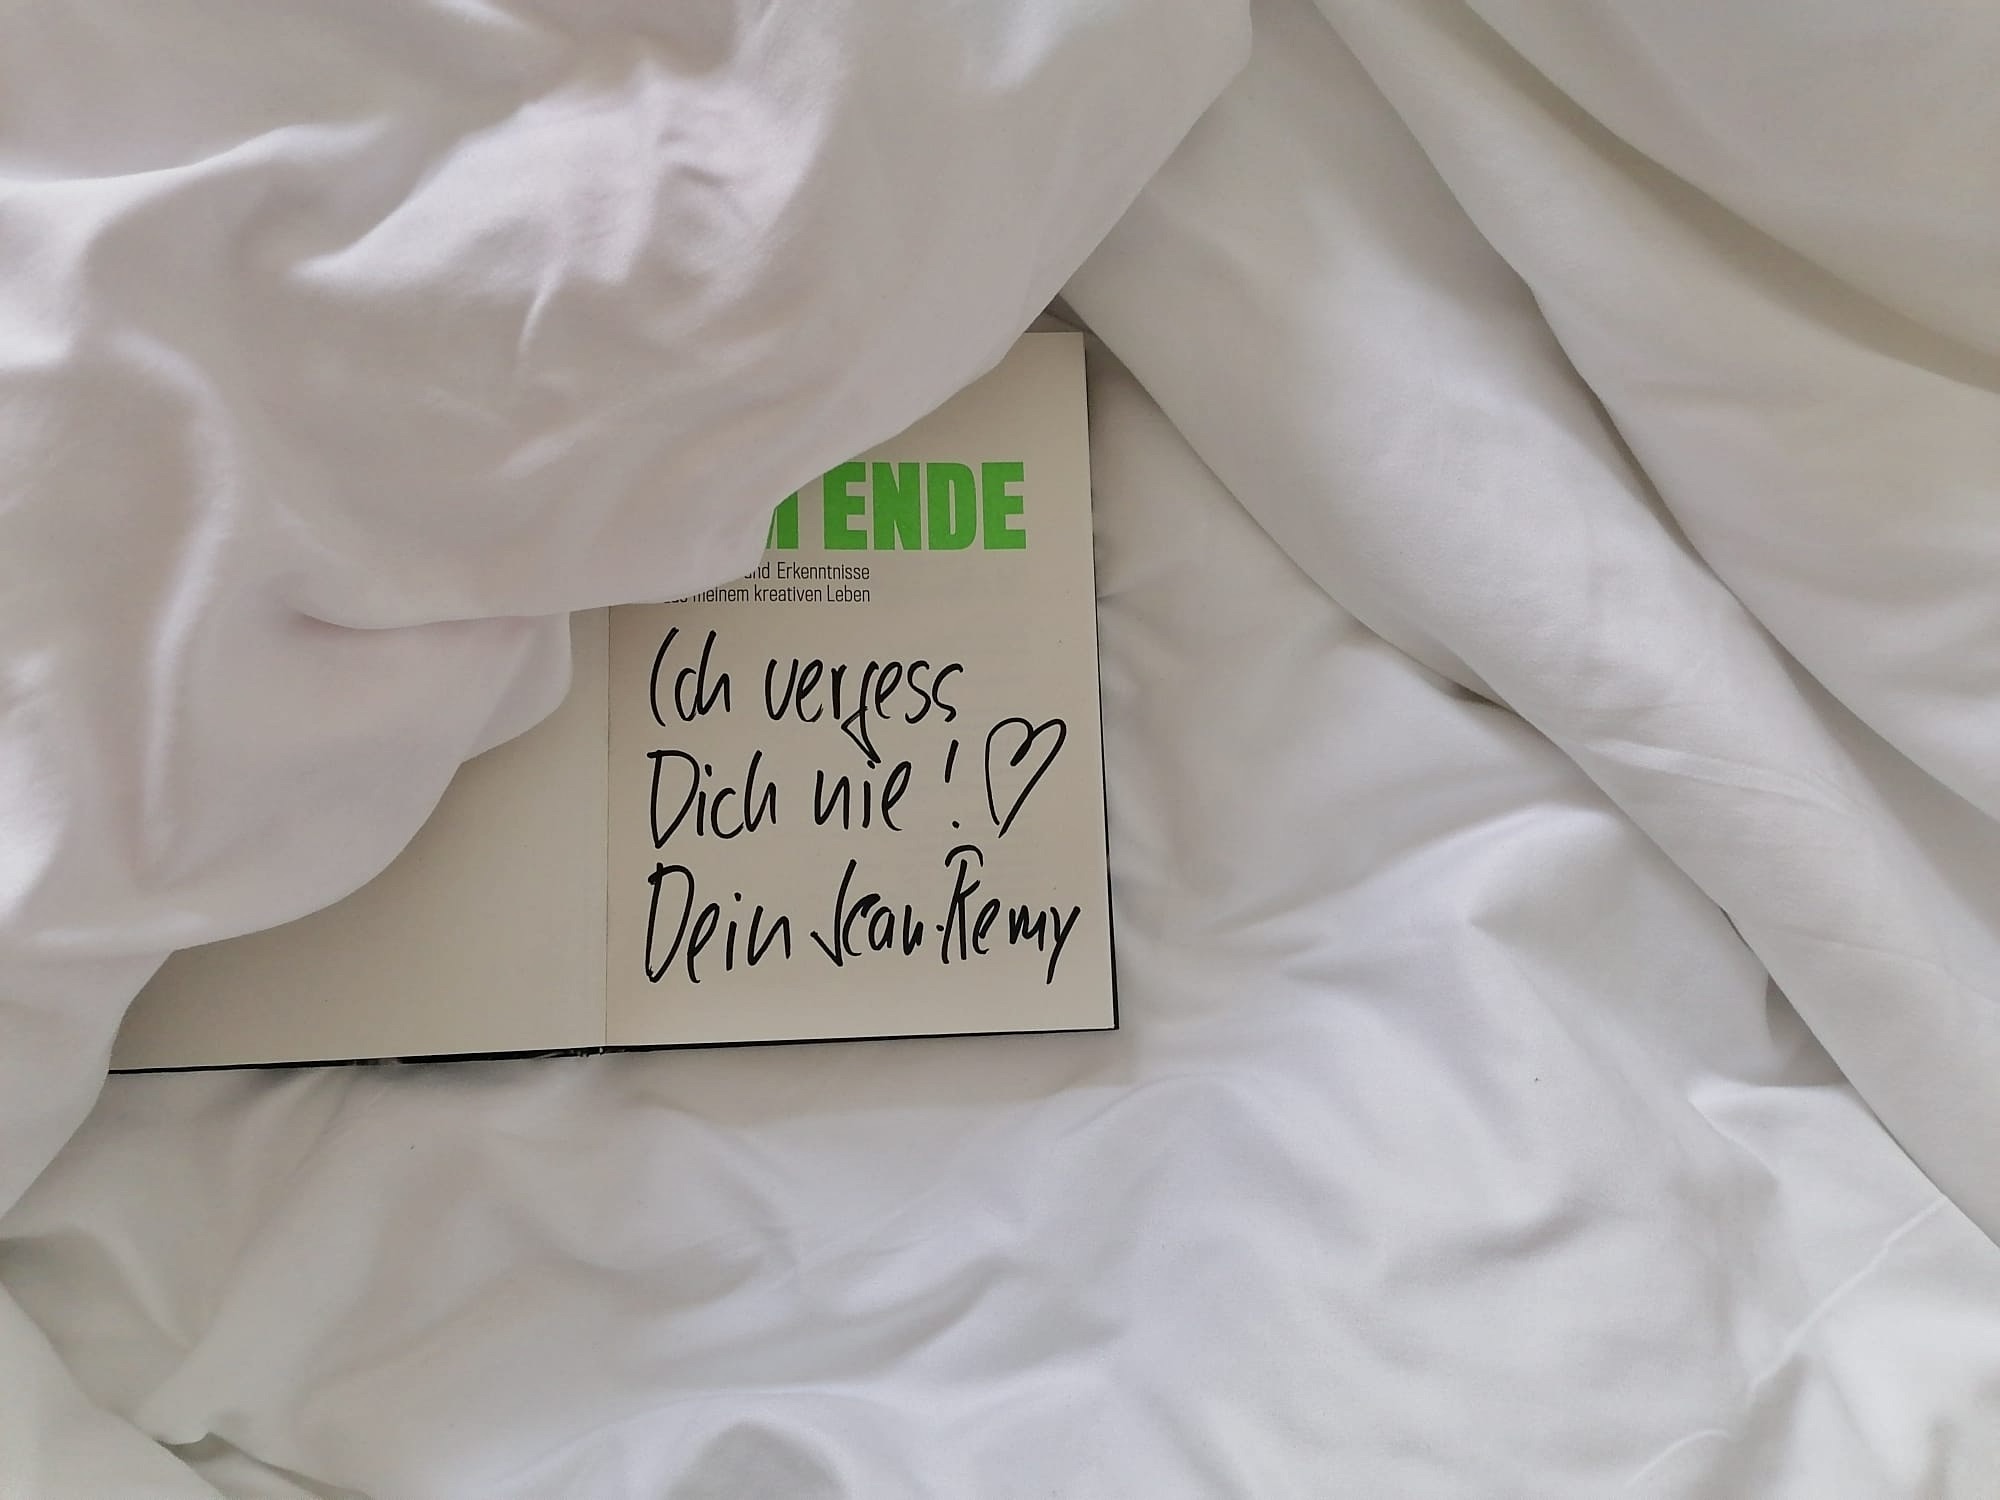 ENDE
und Erkenntnisse
meinem kreativen Leben
Ich vergess
Dich nie! ♡
Dein Jean-Remy